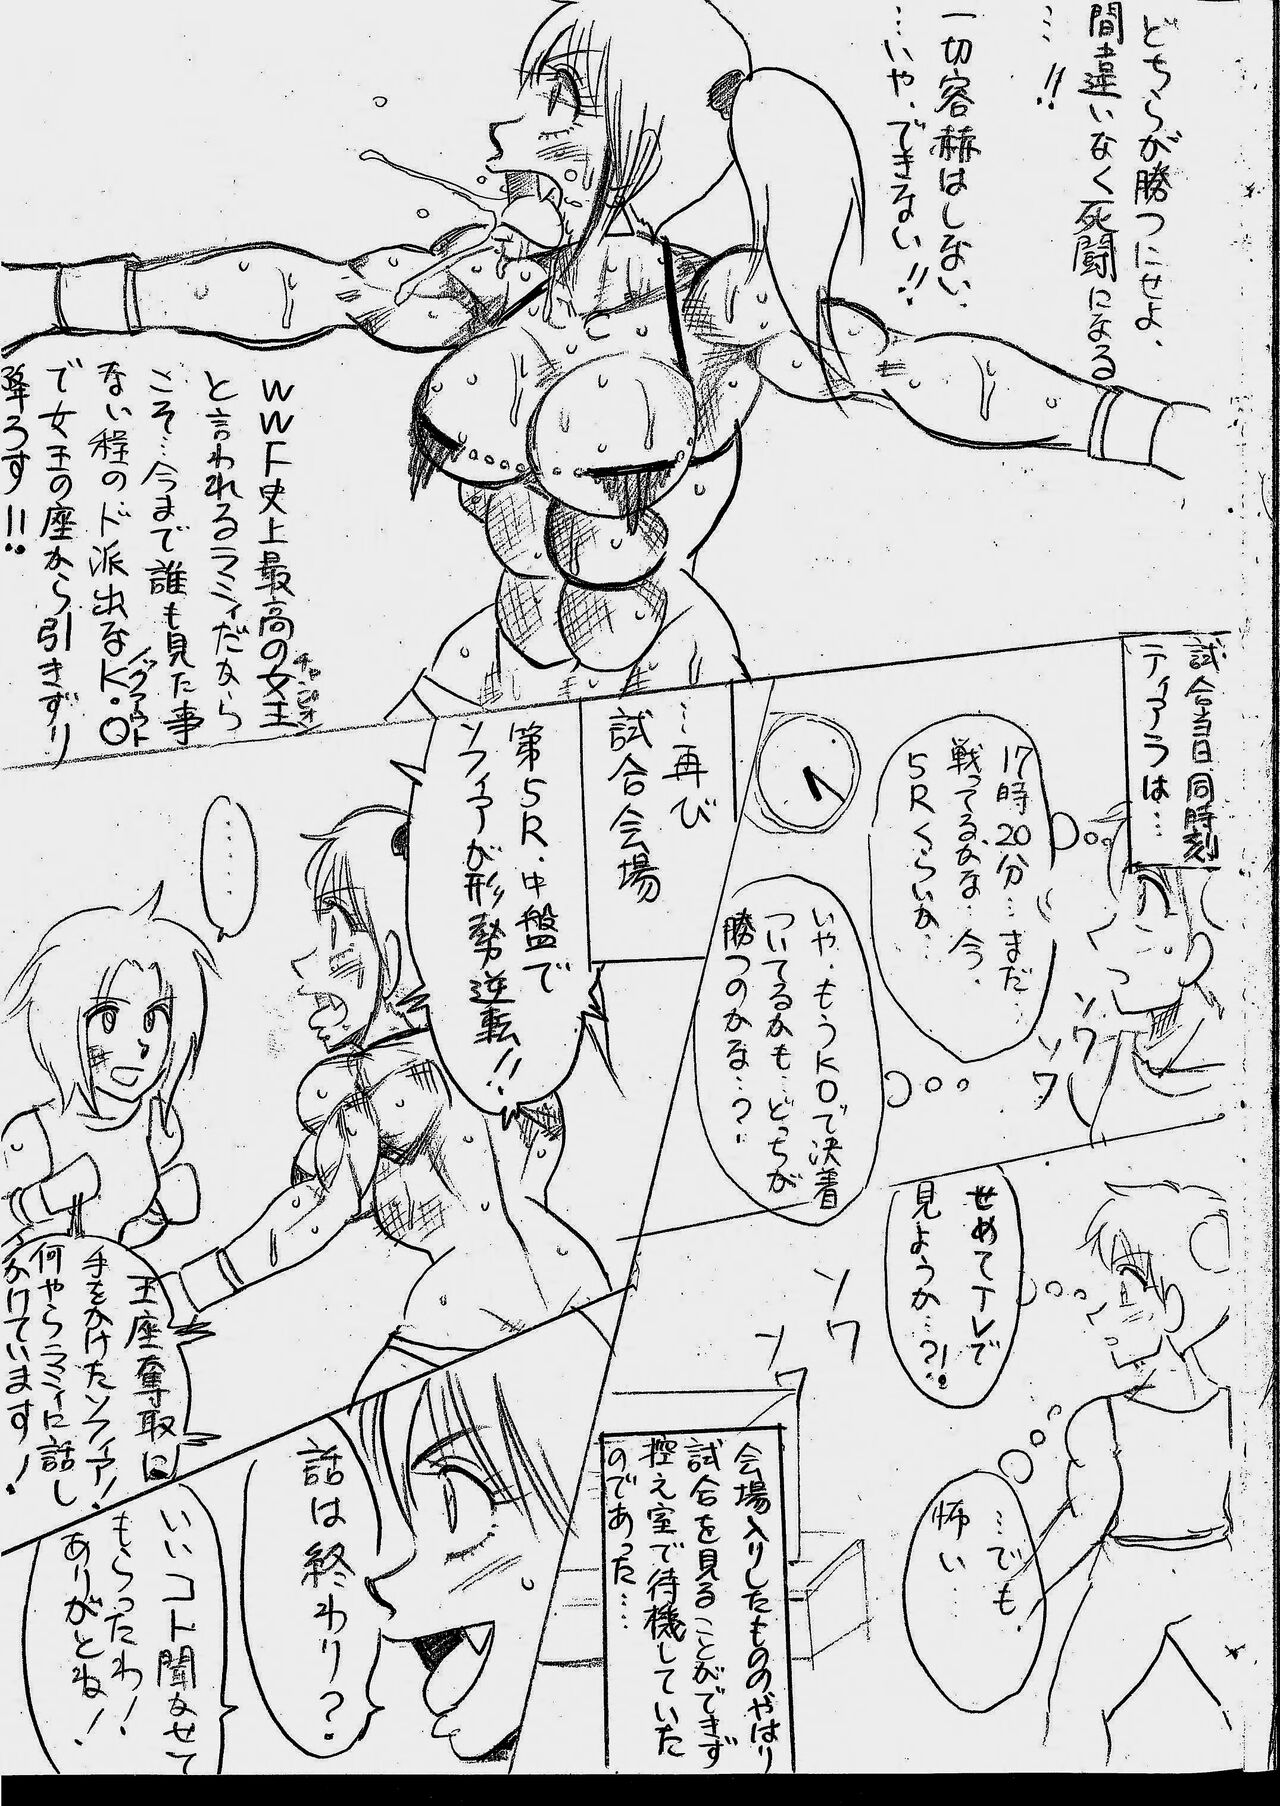 どちらが勝つにせよ、
間違いなく死闘になる
…!!
一切容赦はしない、
…いや、できない!!
WWF史上最高の女王
チャンピオン
と言われるラミィだから
こそ…今まで誰も見た事
ない程のド派出なK・O
ノックアウト
で女王の座から引きずり
降ろす!!
試合当日同時刻
ティアラは…
17時20分…まだ
戦ってるかな…今、
5Rくらいか…
いや、もうKOで決着
ついてるかも…どっちが
勝つのかな…?
ソワ
ソワ
…再び
試合会場
第5R、中盤で
ソフィアが形勢逆転!!
‥‥
王座奪取に
手をかけたソフィア!
何やらラミィに話し
かけています!
せめてTVで
見ようか…?!
…でも、
怖い…
ソワ
ソワ
会場入りしたもののやはり
試合を見ることができず
控え室で待機していた
のであった……
話は終わり?
いいコト聞かせて
もらったわ!
ありがとね!